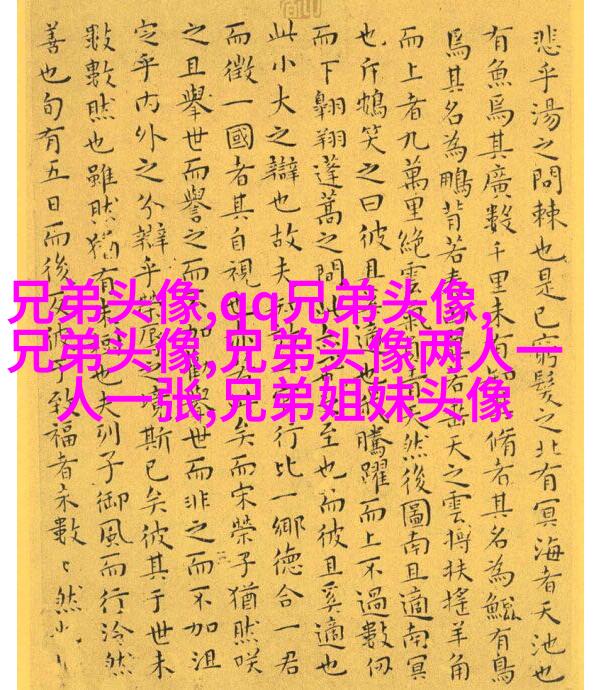 兄弟头像,qq兄弟头像,
兄弟头像,兄弟头像两人一
人一张,兄弟姐妹头像
悲乎湯之問棘也是已窮髮之北有冥海者天池也
有魚焉其廣數千里未有知脩者其名為鯤有鳥
焉其名為鵬背若若垂天之雲摶扶搖羊角
而上者九萬里絕雲氣負青天然後圖南且適南冥
也斥鴳笑之曰彼且適也騰躍而上不過數仞
而下翱翔蓬蒿之間此至也而彼且奚適也
此小大之辯也故夫行比一鄉德合一君
而徵一國者其自視也矣而宋榮子猶然咲
之且舉世而譽之而不加勸世而非之而不加沮
定乎內外之分辯乎榮辱之斯已矣彼其于世未
數數然也雖然猶有未也夫列子御風而行泠然
善也旬有五日而後反彼于致福者未數〻然